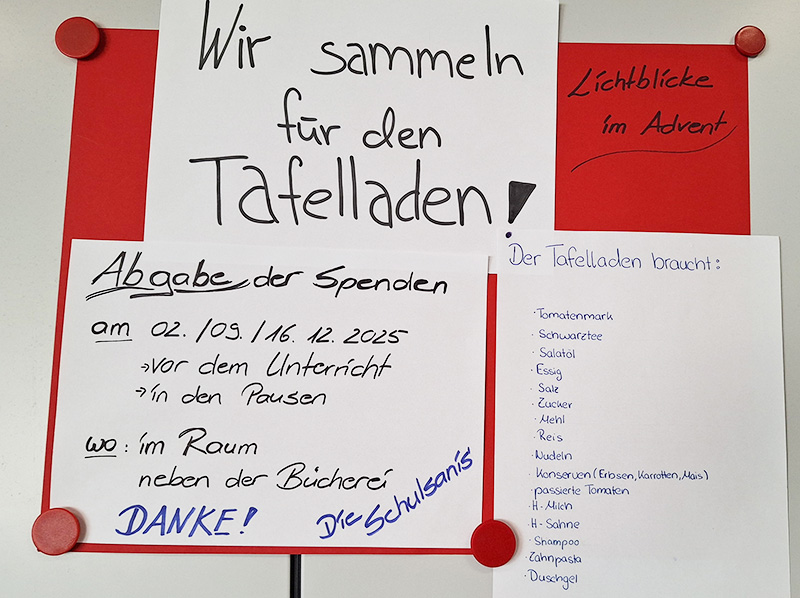 Wir sammeln
für den
Tafelladen!
Lichtblicke
im Advent
Abgabe der Spenden
am 02. /09. /16. 12. 2025
→vor dem Unterricht
→in den Pausen
wo: im Raum
neben der Bücherei
DANKE!
Die Schulsanis
Der Tafelladen braucht:
· Tomatenmark
· Schwarztee
· Salatöl
· Essig
· Salz
· Zucker
· Mehl
· Reis
· Nudeln
· Konserven (Erbsen, Karrotten, Mais)
· passierte Tomaten
· H-Milch
· H-Sahne
· Shampoo
· Zahnpasta
· Duschgel